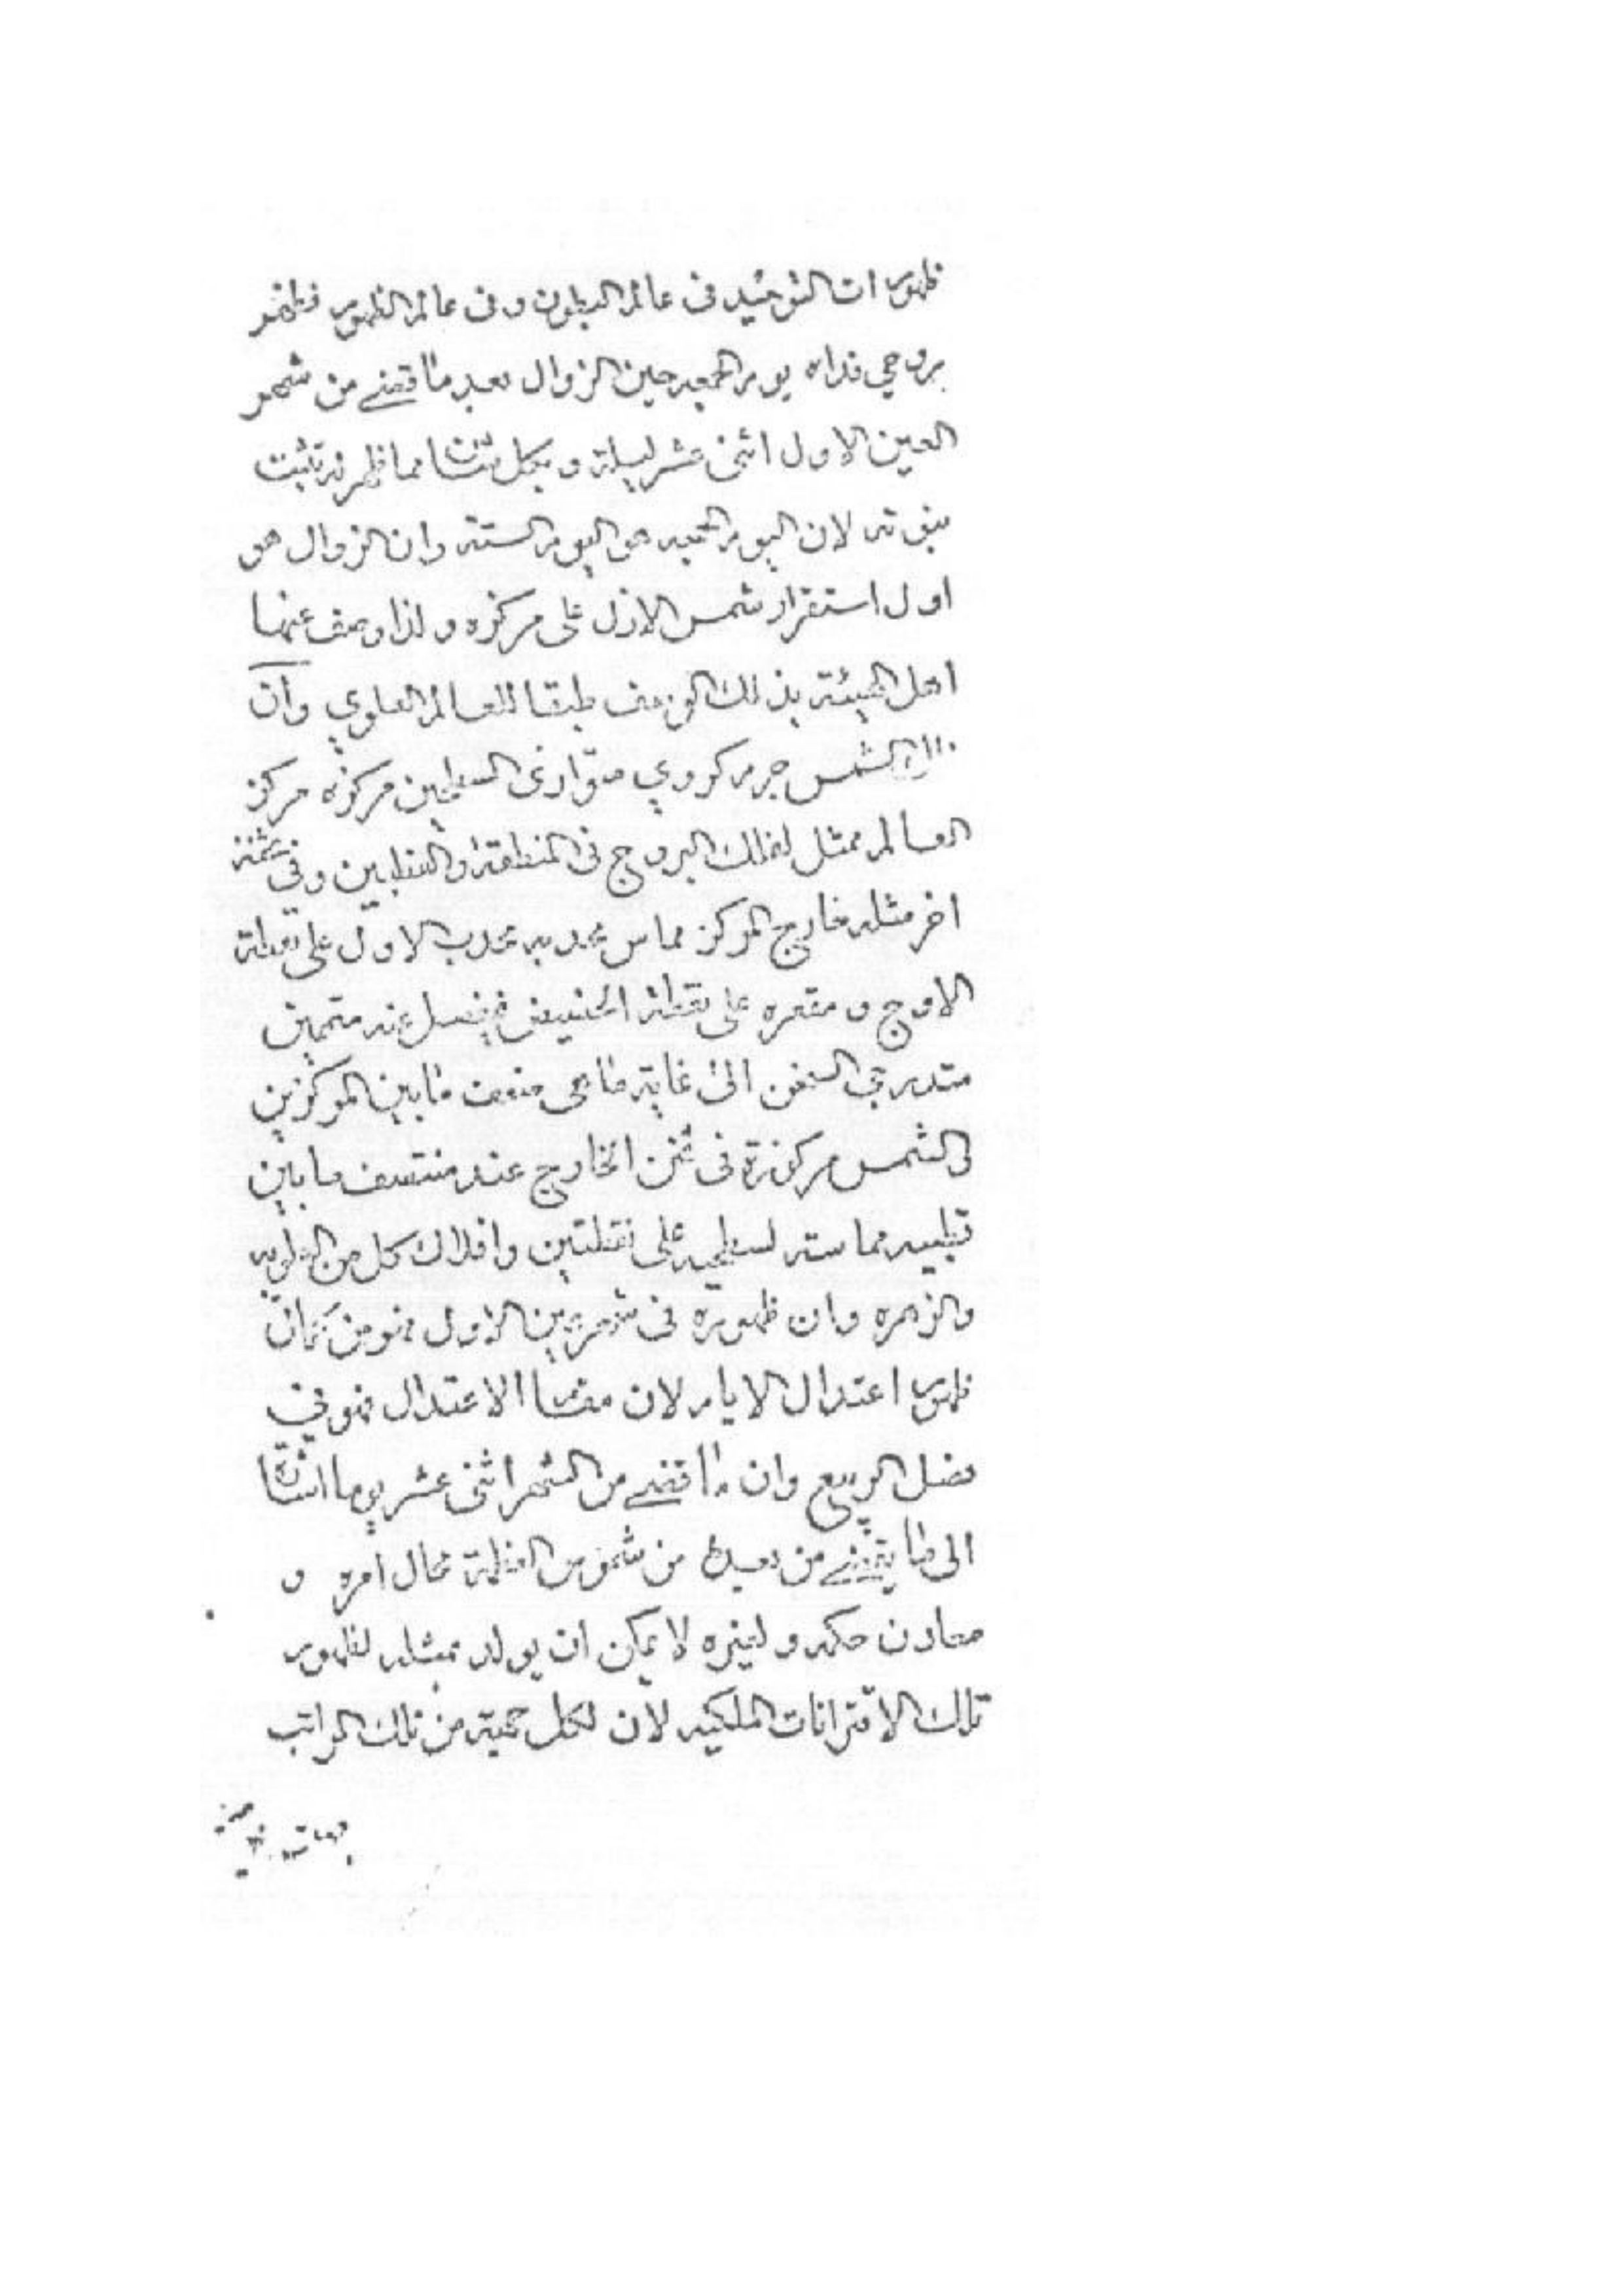 ظهورات التوحيد فى عالم البطون وفى عالم الظهور فظهر
بروحي فداه يوم الجمعه حين الزوال بعد ما قضے من شهر
العين الاول اثنى عشر ليلة و بكل شانا مما ظهر به تثبت
بنوته لان اليوم الجمعه هو اليوم الستة وان الزوال هو
اول استقرار شمس الازل على مركزه و لذا وصف عنها
اهل الهيئة بذلك الوصف طبقا للعالم العلوي وان
الشمس جرم كروي متوازى السطحين مركزه مركز
العالم ممثل لفلك البروج فى المنطقة والقطبين وفي ثخنه
اخر مثله خارج المركز مماس محدبه محدب الاول على نقطة
الاوج و مقعره على نقطة الحضيض فيفصل عنه متممين
متدرجي الثخن الى غاية ما هى ضعف ما بين المركزين
الشمس مركوزة فى ثخن الخارج عند منتصف ما بين
قطبيه مماسته لسطحيه على نقطتين وافلاك كل من العلويه
والزهره وان ظهوره فى شهر عين الاول فهو من
ظهور اعتدال الايام لان الاعتدال فهو في
فصل الربيع وان ما قضے من الشهر اثنى عشر يوما
الى ما يقضے من بعده من شموس العظمة محال امره و
معادن حكمه و لغيره لا يمكن ان يولد بمثله لظهور
تلك الاقترانات الملكيه لان لكل جهة من تلك المراتب